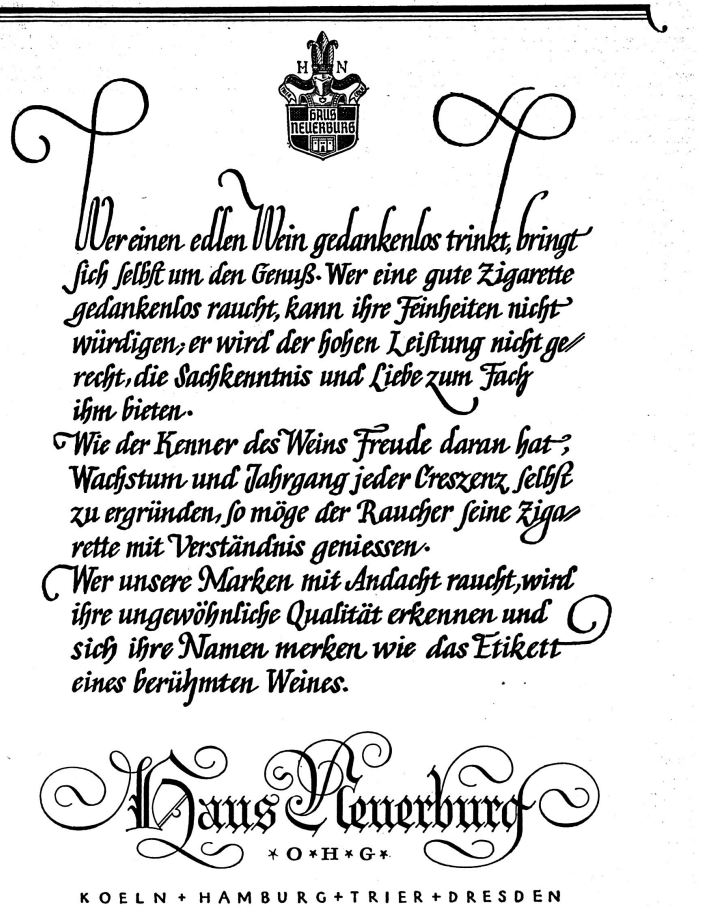 H N
HAUS
NEUERBURG
Wer einen edlen Wein gedankenlos trinkt, bringt
sich selbst um den Genuß. Wer eine gute Zigarette
gedankenlos raucht, kann ihre Feinheiten nicht
würdigen; er wird der hohen Leistung nicht ge⸗
recht, die Sachkenntnis und Liebe zum Fach
ihm bieten.
Wie der Kenner des Weins Freude daran hat,
Wachstum und Jahrgang jeder Creszenz selbst
zu ergründen, so möge der Raucher seine Ziga⸗
rette mit Verständnis geniessen.
Wer unsere Marken mit Andacht raucht, wird
ihre ungewöhnliche Qualität erkennen und
sich ihre Namen merken wie das Etikett
eines berühmten Weines.
Haus Neuerburg
* O * H * G *
KOELN + HAMBURG + TRIER + DRESDEN